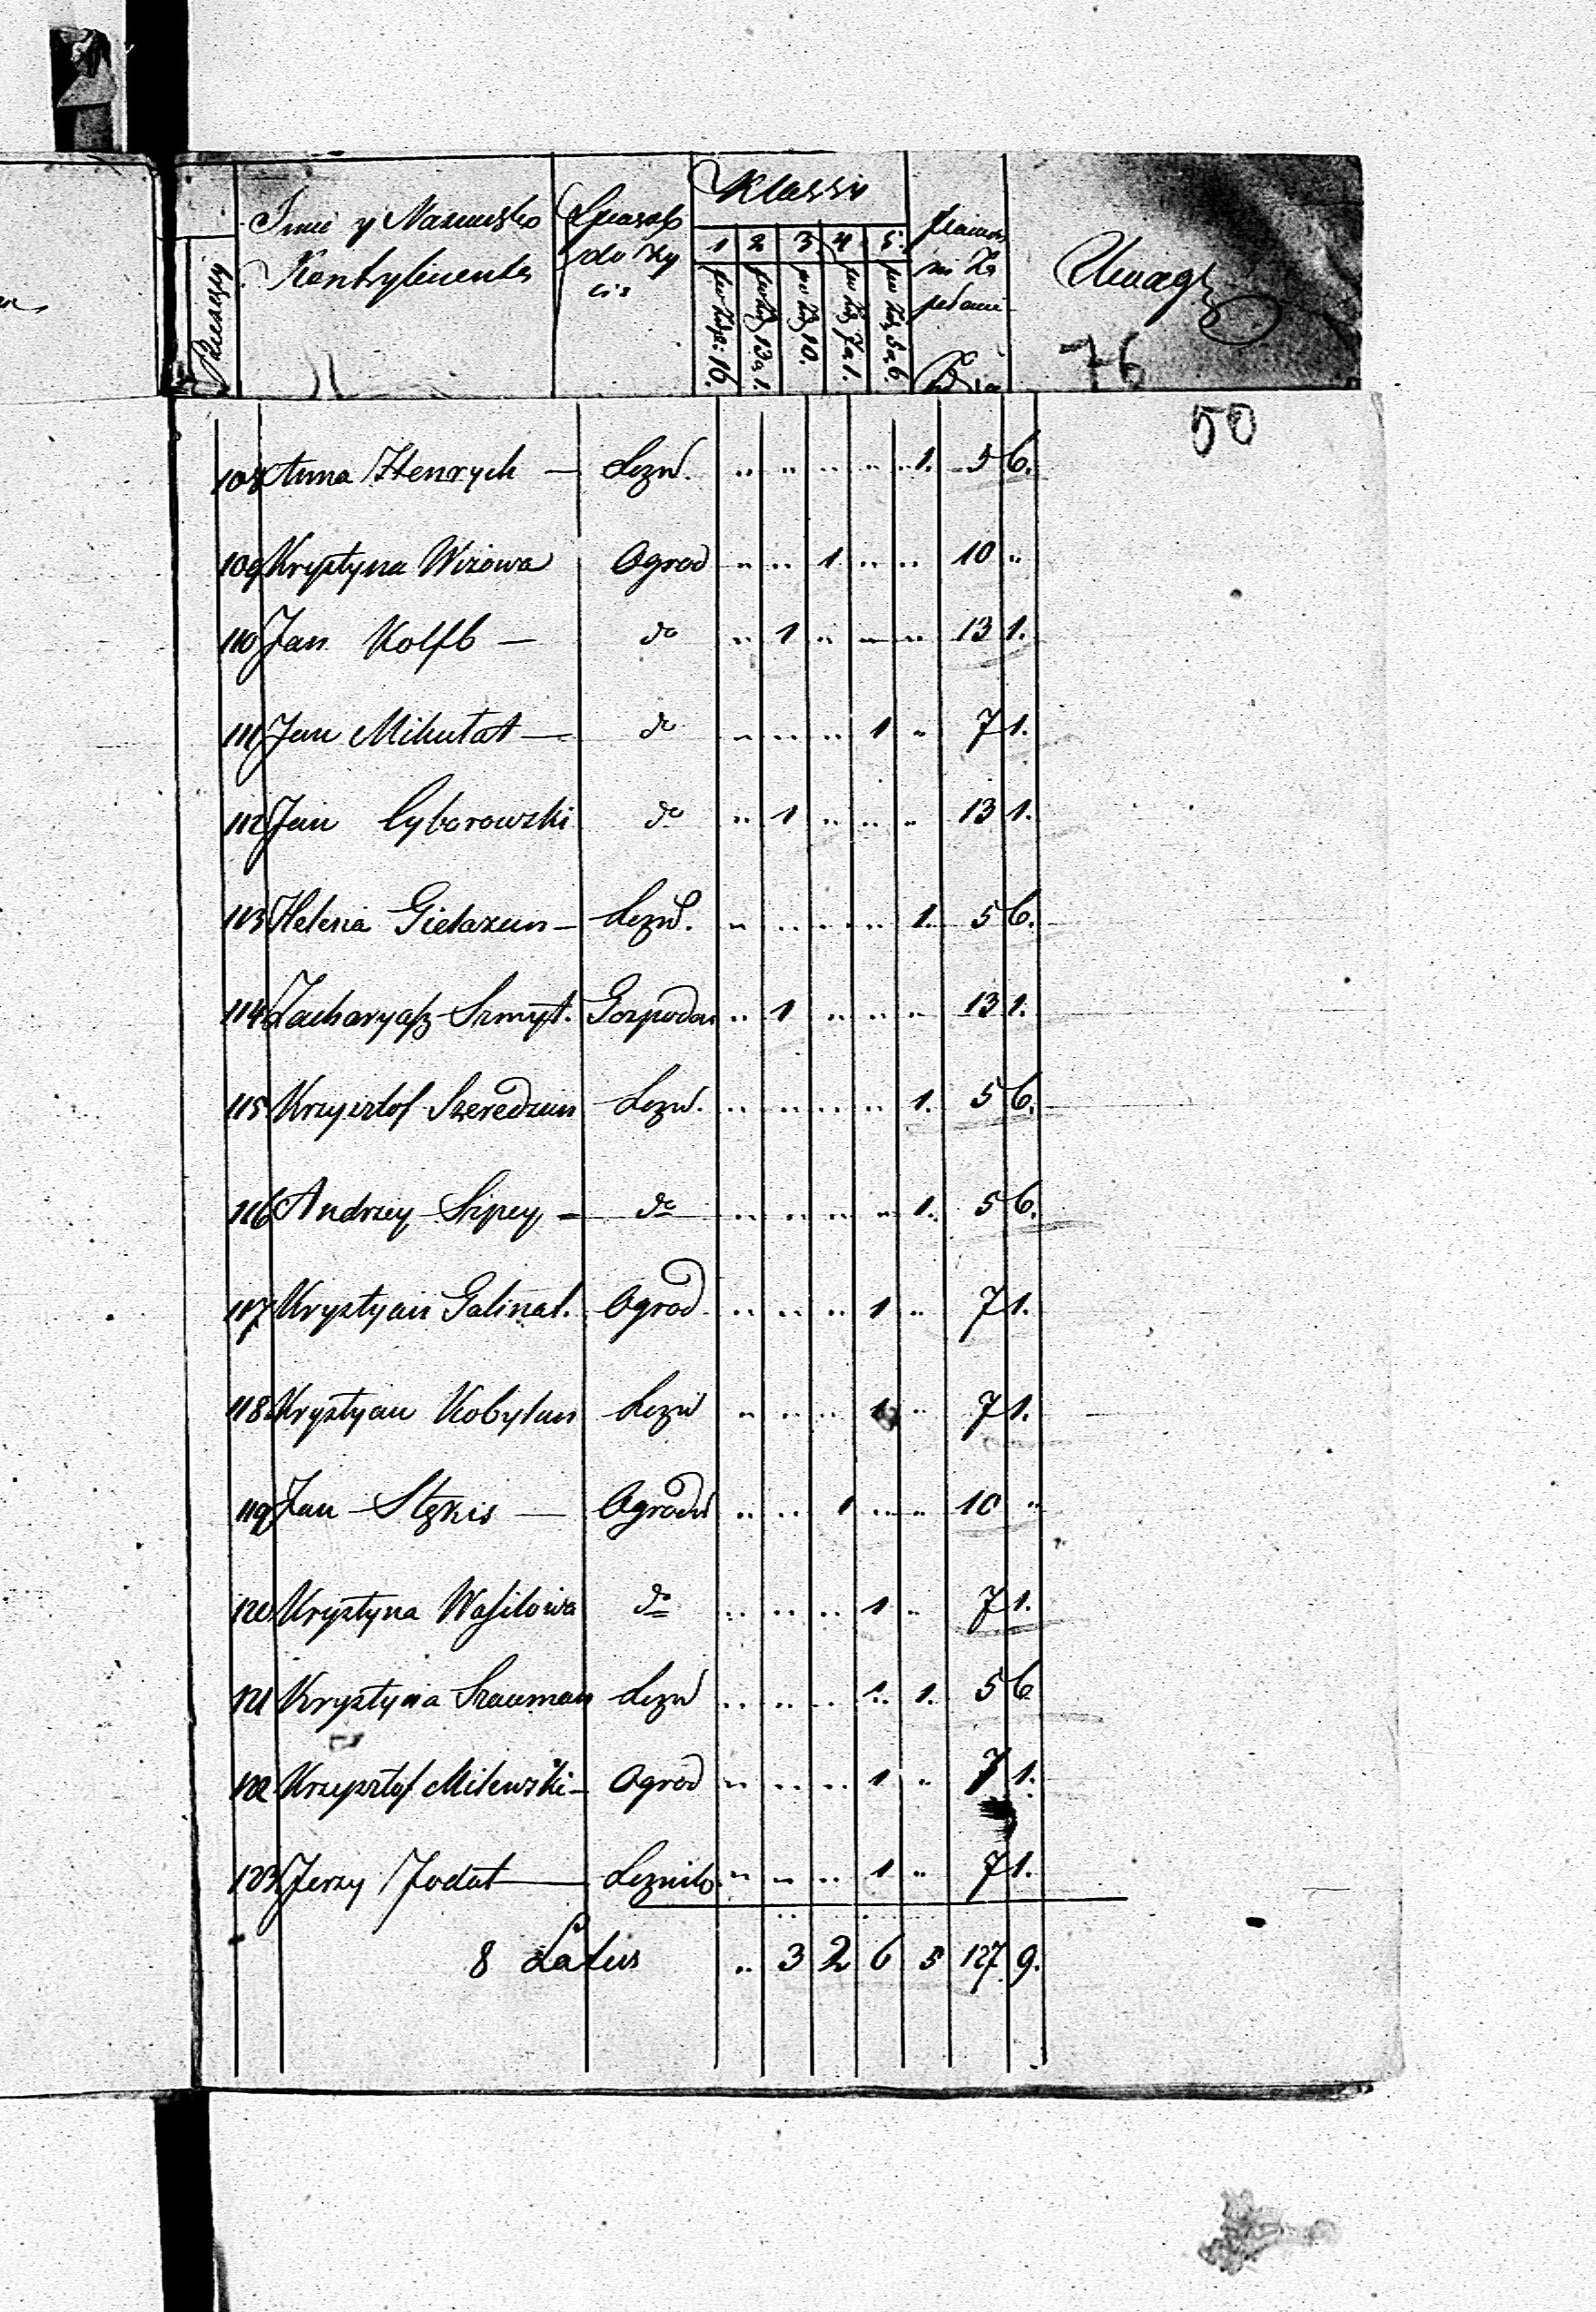 Imie y Nazwisko Kontrybuenta
Sposob do Zycia
Klassy
1 2 3 4 5.
16. 13 a 1. 10. 7 a 1. 5 a 6.
Uwagi
76
50
108 Anna Henrych — Lozn. .. .. .. .. 1. 5 6.
109 Krystyna Wizowa Ogrod .. .. 1. .. .. 10 ..
110 Jan Kolfb — do .. 1 .. .. .. 13 1.
111 Jan Mikutat — do .. .. .. 1 .. 7 1.
112 Jan Cyborowski do .. 1 .. .. .. 13 1.
113 Helena Gietazun — Lozn. .. .. .. .. 1. 5 6.
114 Zacharyasz Szmyt. Gospodar .. 1 .. .. .. 13 1.
115 Krzysztof Szeredzun Lozn. .. .. .. .. 1. 5 6.
116 Andrzey Szpey — do .. .. .. .. 1. 5 6.
117 Krystyan Galinat. Ogrod .. .. .. 1 .. 7 1.
118 Krystyan Kobylun Lozn .. .. .. 1 .. 7 1.
119 Jan Stękis — Ogrodn .. .. 1 .. .. 10 ..
120 Krystyna Wasilowa do .. .. .. 1 .. 7 1.
121 Krystyna Szauman Lozn .. .. .. 1. 1. 5 6
122 Krzysztof Milewski — Ogrod .. .. .. 1 .. 7 1.
123 Jerzy Jodat — Loznik .. .. .. 1 .. 7 1.
8 Latus .. 3 2 6 5 127 9.